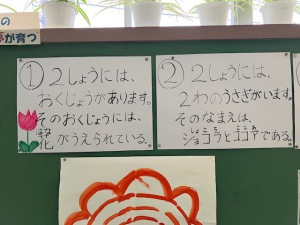 の
が育つ
① 2しょうには、
おくじょうがあります。
そのおくじょうには、
花がうえられている。
② 2しょうには、
2わのうさぎがいます。
そのなまえは、
ショコラとココアである。